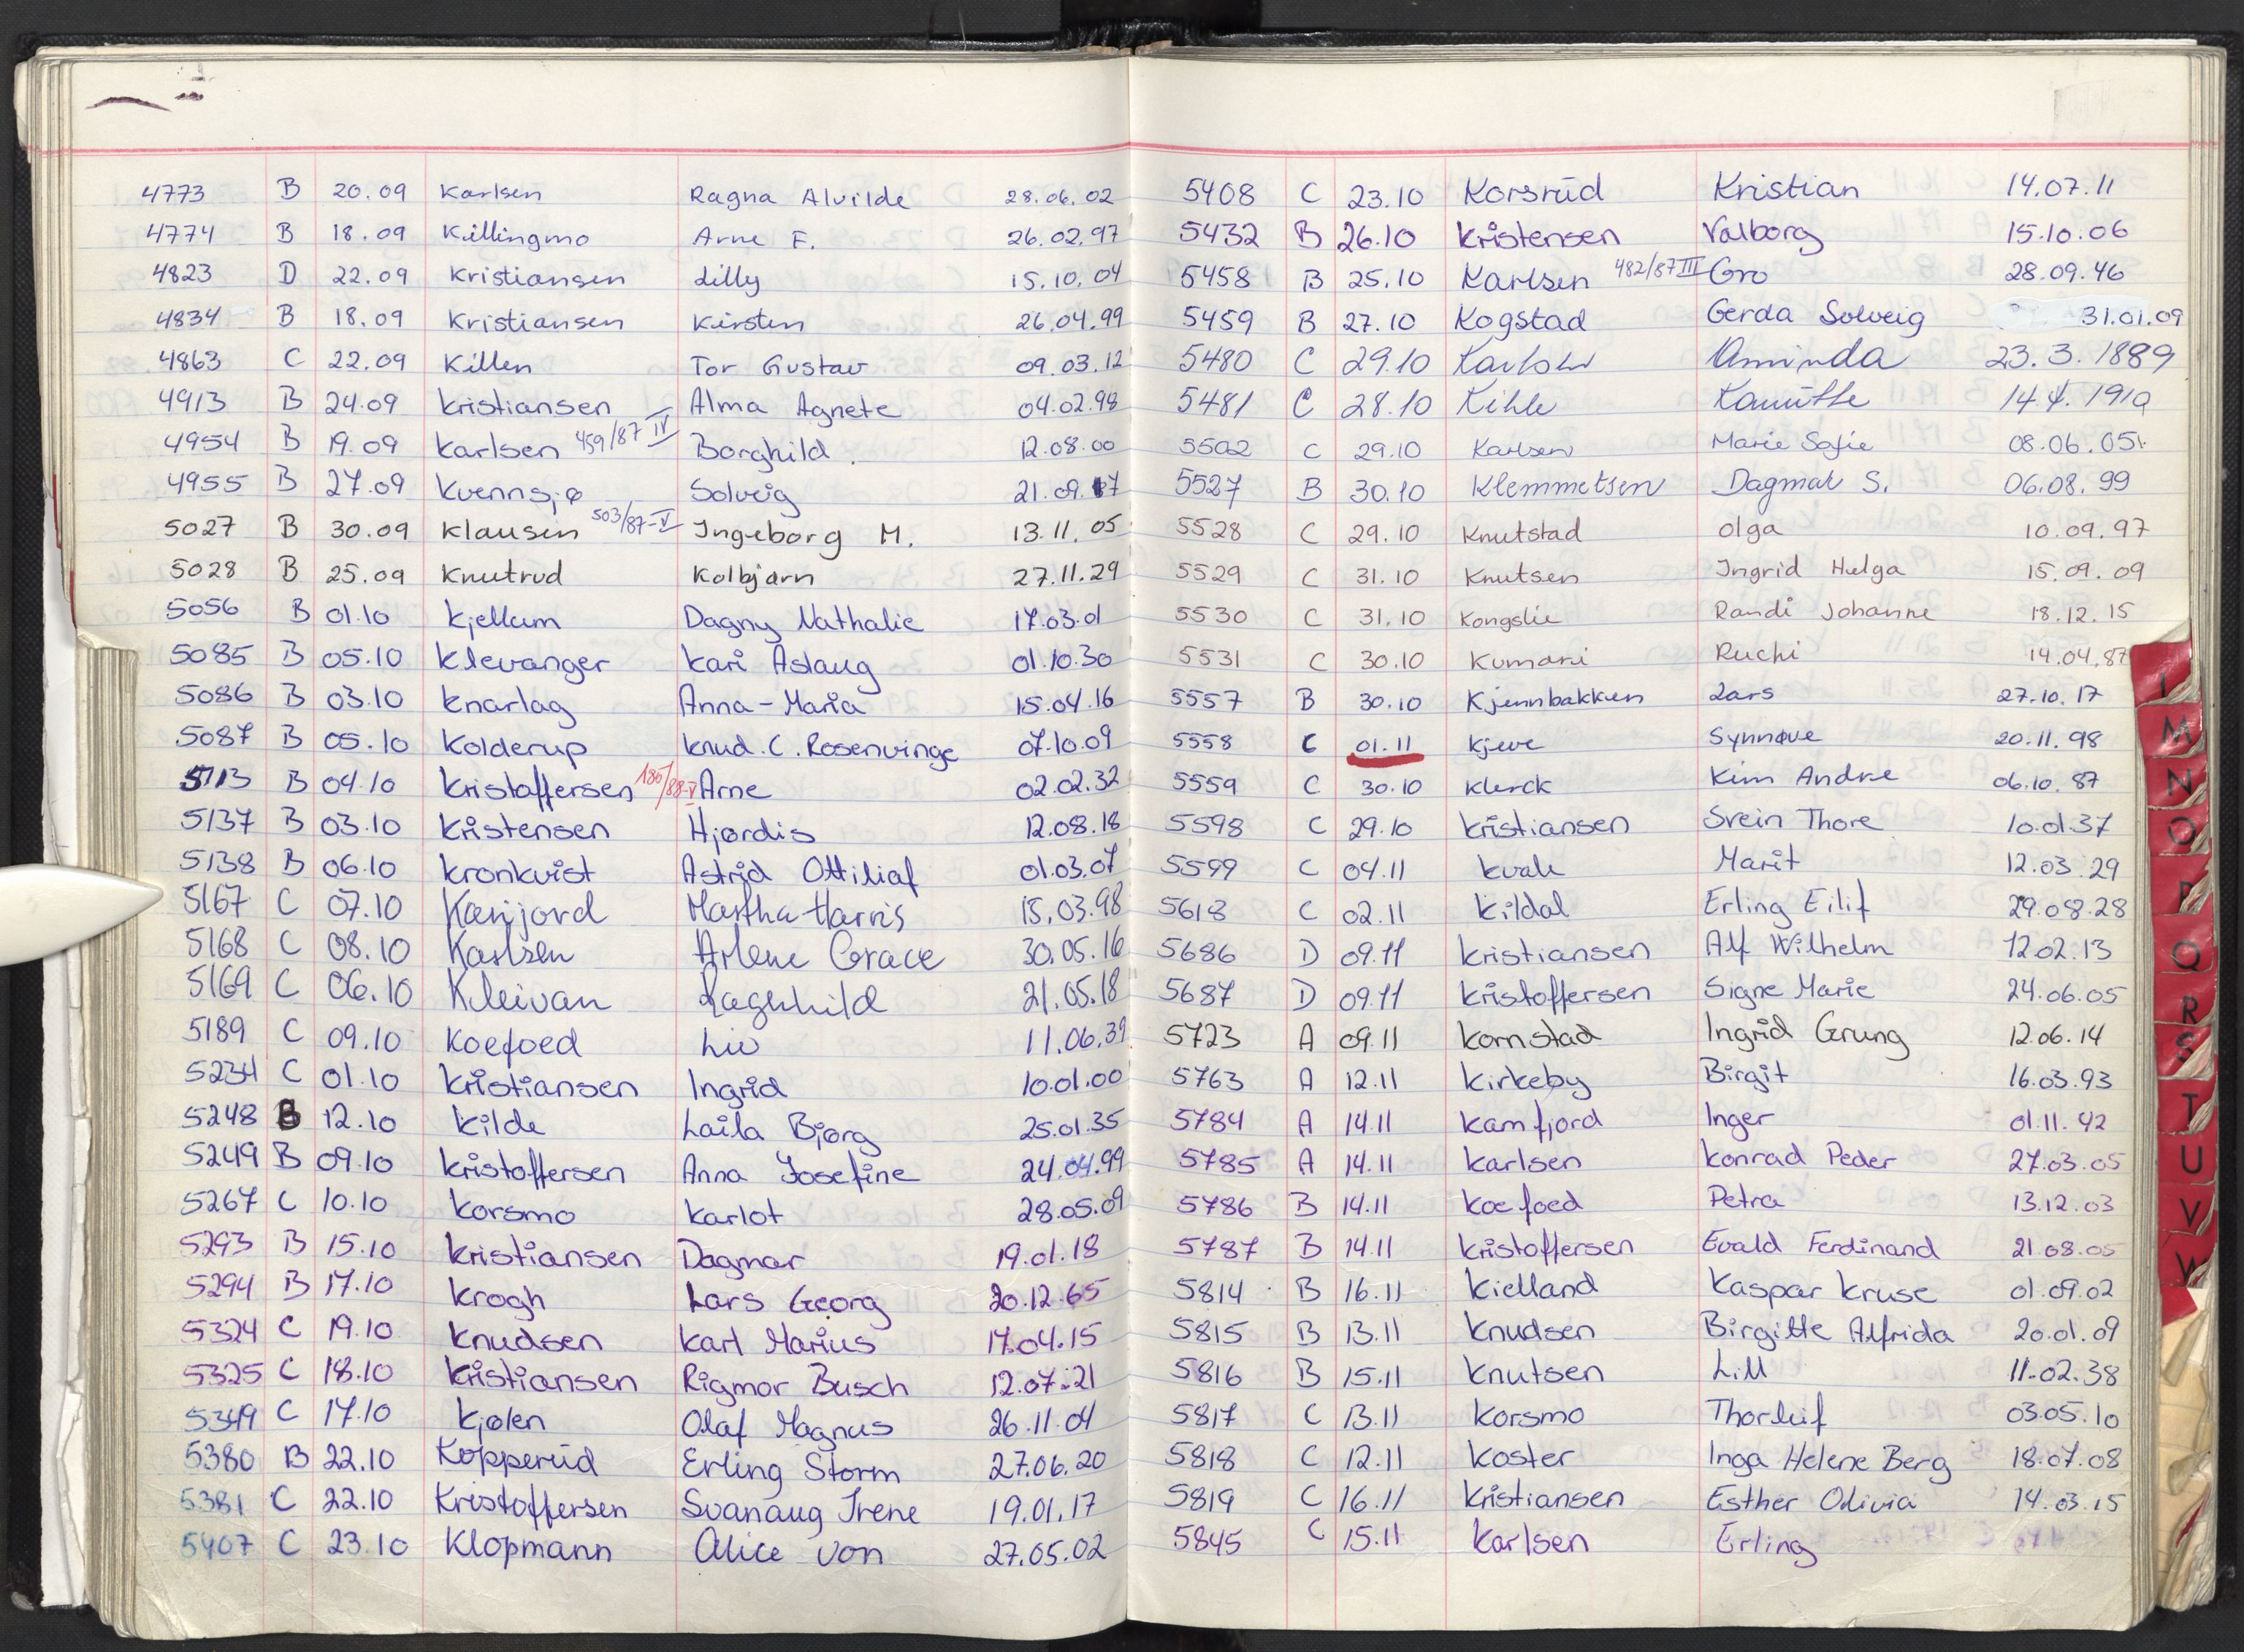 4773 B 20.09 Karlsen Ragna Alvilde 28.06.02
4774 B 18.09 Killingmo Arne F. 26.02.97
4823 D 22.09 Kristiansen Lilly 15.10.04
4834 B 18.09 Kristiansen Kirsten 26.04.99
4863 C 22.09 Killen Tor Gustav 09.03.12
4913 B 24.09 Kristiansen Alma Agnete 04.02.98
4954 B 19.09 Karlsen 459/87 IV Borghild 12.08.00
4955 B 27.09 Kvennsjø Solveig 21.09.17
5027 B 30.09 Klausen 503/87-V Ingeborg M. 13.11.05
5028 B 25.09 Knutrud Kolbjørn 27.11.29
5056 B 01.10 Kjellum Dagny Nathalie 17.03.01
5085 B 05.10 Klevanger Kari Aslaug 01.10.30
5086 B 03.10 Knarlag Anna-Maria 15.04.16
5087 B 05.10 Kolderup Knud.C.Rosenvinge 07.10.09
5113 B 04.10 Kristoffersen 180/88-V Arne 02.02.32
5137 B 03.10 Kristensen Hjørdis 12.08.18
5138 B 06.10 Kronkvist Astrid Ottiliaf 01.03.07
5167 C 07.10 Kærijord Martha Harris 15.03.98
5168 C 08.10 Karlsen Arlene Grace 30.05.16
5169 C 06.10 Kleivan Ragnhild 21.05.18
5189 C 09.10 Koefoed Liv 11.06.39
5234 C 01.10 Kristiansen Ingrid 10.01.00
5248 B 12.10 Kilde Laila Bjørg 25.01.35
5249 B 09.10 Kristoffersen Anna Josefine 24.04.99
5267 C 10.10 Korsmo Karlot 28.05.09
5293 B 15.10 Kristiansen Dagmar 19.01.18
5294 B 17.10 Krogh Lars Georg 20.12.65
5324 C 19.10 Knudsen Karl Marius 17.04.15
5325 C 18.10 Kristiansen Rigmor Busch 12.07.21
5349 C 17.10 Kjølen Olaf Magnus 26.11.04
5380 B 22.10 Kopperud Erling Storm 27.06.20
5381 C 22.10 Kristoffersen Svanaug Irene 19.01.17
5407 C 23.10 Klopmann Alice von 27.05.02
5408 C 23.10 Korsrud Kristian 14.07.11
5432 B 26.10 Kristensen Valborg 15.10.06
5458 B 25.10 Karlsen 482/87 III Gro 28.09.46
5459 B 27.10 Kogstad Gerda Solveig 31.01.09
5480 C 29.10 Karlsen Aminda 23.3.1889
5481 C 28.10 Kihle 14.4.1910
5502 C 29.10 Karlsen Marie Sofie 08.06.05
5527 B 30.10 Klemmetsen Dagmar S. 06.08.99
5528 C 29.10 Knutstad Olga 10.09.97
5529 C 31.10 Knutsen Ingrid Helga 15.09.09
5530 C 31.10 Kongslie Randi Johanne 18.12.15
5531 C 30.10 Kumari Ruchi 14.04.87
5557 B 30.10 Kjennbakken Lars 27.10.17
5558 C 01.11 Kjeve Synnøve 20.11.98
5559 C 30.10 Klerck Kim Andre 06.10.87
5598 C 29.10 Kristiansen Svein Thore 10.01.37
5599 C 04.11 Kvale Marit 12.03.29
5618 C 02.11 Kildal Erling Eilif 29.08.28
5686 D 09.11 Kristiansen Alf Wilhelm 12.02.13
5687 D 09.11 Kristoffersen Signe Marie 24.06.05
5723 A 09.11 Kornstad Ingrid Grung 12.06.14
5763 A 12.11 Kirkeby Birgit 16.03.93
5784 A 14.11 Kamfjord Inger 01.11.42
5785 A 14.11 Karlsen Konrad Peder 27.03.05
5786 B 14.11 Koefoed Petra 13.12.03
5787 B 14.11 Kristoffersen Evald Ferdinand 21.08.05
5814 B 16.11 Kielland Kaspar Kruse 01.09.02
5815 B 13.11 Knudsen Birgitte Alfrida 20.01.09
5816 B 15.11 Knutsen Lill 11.02.38
5817 C 13.11 Korsmo Thorleif 03.05.10
5818 C 12.11 Koster Inga Helene Berg 18.07.08
5819 C 16.11 Kristiansen Esther Olivia 14.03.15
5845 C 15.11 Karlsen Erling
M
N
O
P
Q
R
S
T
U
V
W